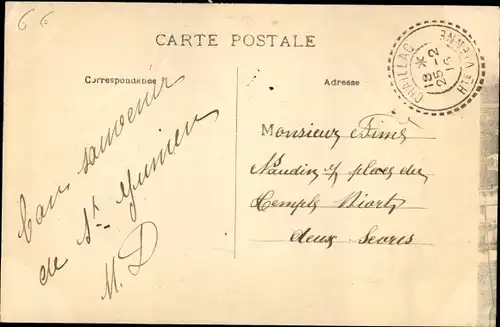 CARTE POSTALE
Correspondance
Adresse
CHAILLAC
HTE VIENNE
18 *
25 - 2
16
Bon souvenir
de St Junien
M. D
Monsieur
Naudin 7 place du
Temple Niort
deux Sevres